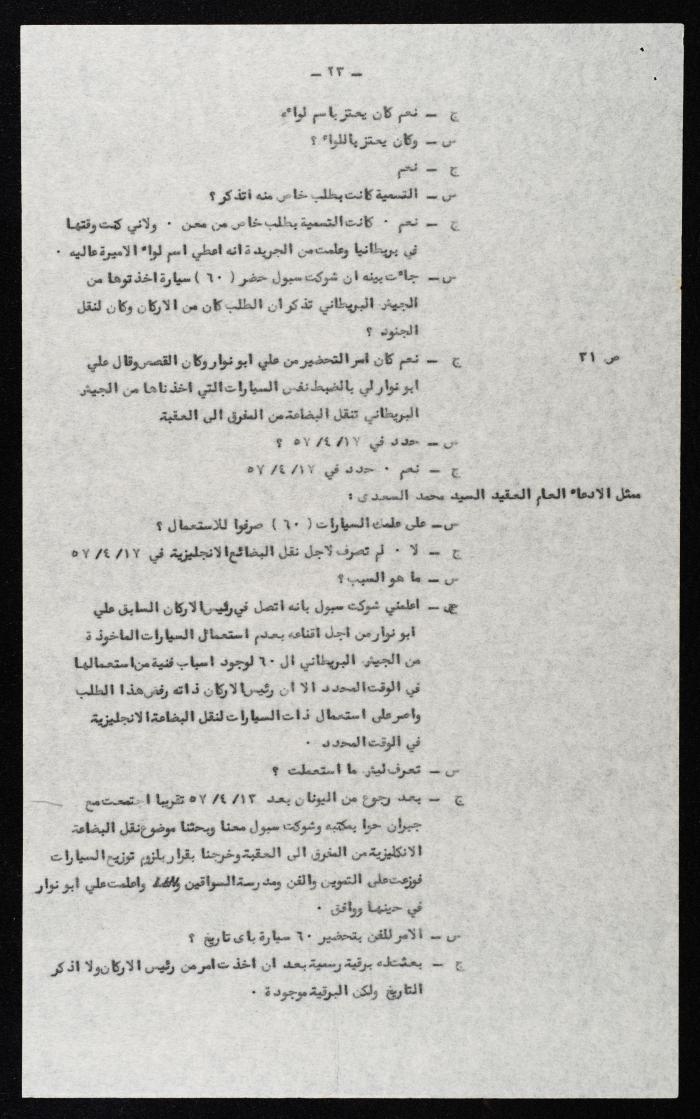 — ٢٣ —
ج — نعم كان يعتز باسم لواءه
س — وكان يعتز باللواء ؟
ج — نعم
س — التسمية كانت بطلب خاص منه اتذكر ؟
ج — نعم ٠ كانت التسمية بطلب خاص من معن ٠ ولاني كنت وقتها
في بريطانيا وعلمت من الجريدة انه اعطي اسم لواء الاميرة عاليه ٠
س — جاءت بينه ان شوكت سبول حضر ( ٦٠ ) سيارة اخذتوها من
الجيش البريطاني تذكر ان الطلب كان من الاركان وكان لنقل
الجنود ؟
ص ٣١
ج — نعم كان امر التحضير من علي ابو نوار وكان القصص وقال علي
ابو نوار لي بالضبط نفس السيارات التي اخذناها من الجيش
البريطاني تنقل البضاعة من المفرق الى العقبة
س — حدد في ١٧/ ٤/ ٥٧ ؟
ج — نعم ٠ حدد في ١٧/ ٤/ ٥٧
ممثل الادعاء العام العقيد السيد محمد السعدى :
س — على علمك السيارات ( ٦٠ ) صرفوا للاستعمال ؟
ج — لا ٠ لم تصرف لاجل نقل البضائع الانجليزية في ١٧/ ٤/ ٥٧
س — ما هو السبب ؟
ج — اعلمني شوكت سبول بانه اتصل في رئيس الاركان السابق علي
ابو نوار من اجل اقناعه بعدم استعمال السيارات الماخوذة
من الجيش البريطاني ال ٦٠ لوجود اسباب فنية من استعمالها
في الوقت المحدد الا ان رئيس الاركان ذاته رفض هذا الطلب
واصر على استعمال ذات السيارات لنقل البضاعة الانجليزية
في الوقت المحدد ٠
س — تعرف ليش ما استعملت ؟
ج — بعد رجوع من اليونان بعد ١٣/ ٤/ ٥٧ تقريبا اجتمعت مع
جبران حوا بمكتبه وشوكت سبول معنا وبحثنا موضوع نقل البضاعة
الانكليزية من المفرق الى العقبة وخرجنا بقرار بلزوم توزيع السيارات
فوزعت على التموين والفن ومدرسة السواقين واعلمت علي ابو نوار
في حينها ووافق ٠
س — الامر للفن بتحضير ٦٠ سيارة باى تاريخ ؟
ج — بعثت له برقية رسمية بعد ان اخذت امر من رئيس الاركان ولا اذكر
التاريخ ولكن البرقية موجودة ٠